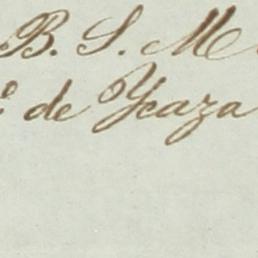 B. S. M
de Ycaza